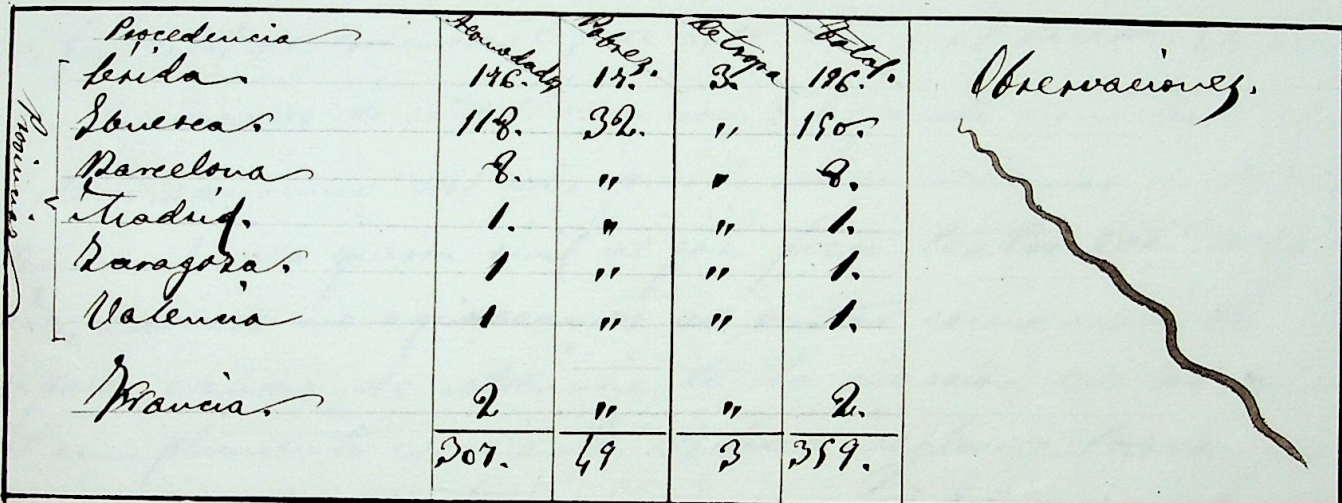 Procedencia Acomodados Pobres. De tropa Total. Observaciones.
Provincias
Lérida. 176. 17. 3. 196.
Huesca. 118. 32. " 150.
Barcelona 8. " " 8.
Madrid. 1. " " 1.
Zaragoza. 1 " " 1.
Valencia 1 " " 1.
Francia. 2 " " 2.
307. 49 3 359.